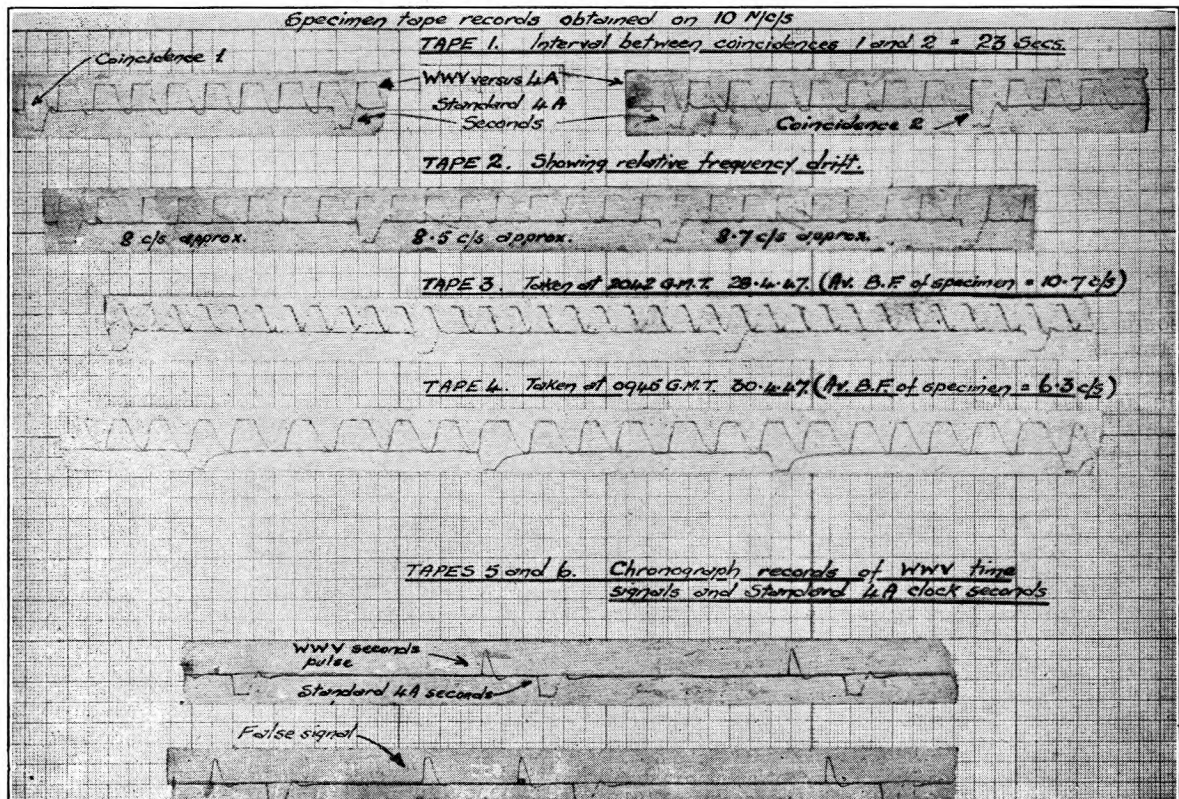 Specimen tape records obtained on 10 Mc/s
TAPE 1. Interval between coincidences 1 and 2 = 23 Secs.
Coincidence 1
WWV versus 4A
Standard 4A
Seconds
Coincidence 2
TAPE 2. Showing relative frequency drift.
8 c/s approx.
8·5 c/s approx.
8·7 c/s approx.
TAPE 3. Taken at 2042 G.M.T. 28·4·47. (Av. B.F. of specimen = 10·7 c/s)
TAPE 4. Taken at 0945 G.M.T. 30·4·47. (Av. B.F. of specimen = 6·3 c/s)
TAPES 5 and 6. Chronograph records of WWV time
signals and Standard 4A clock seconds
WWV seconds
pulse
Standard 4A seconds
False signal